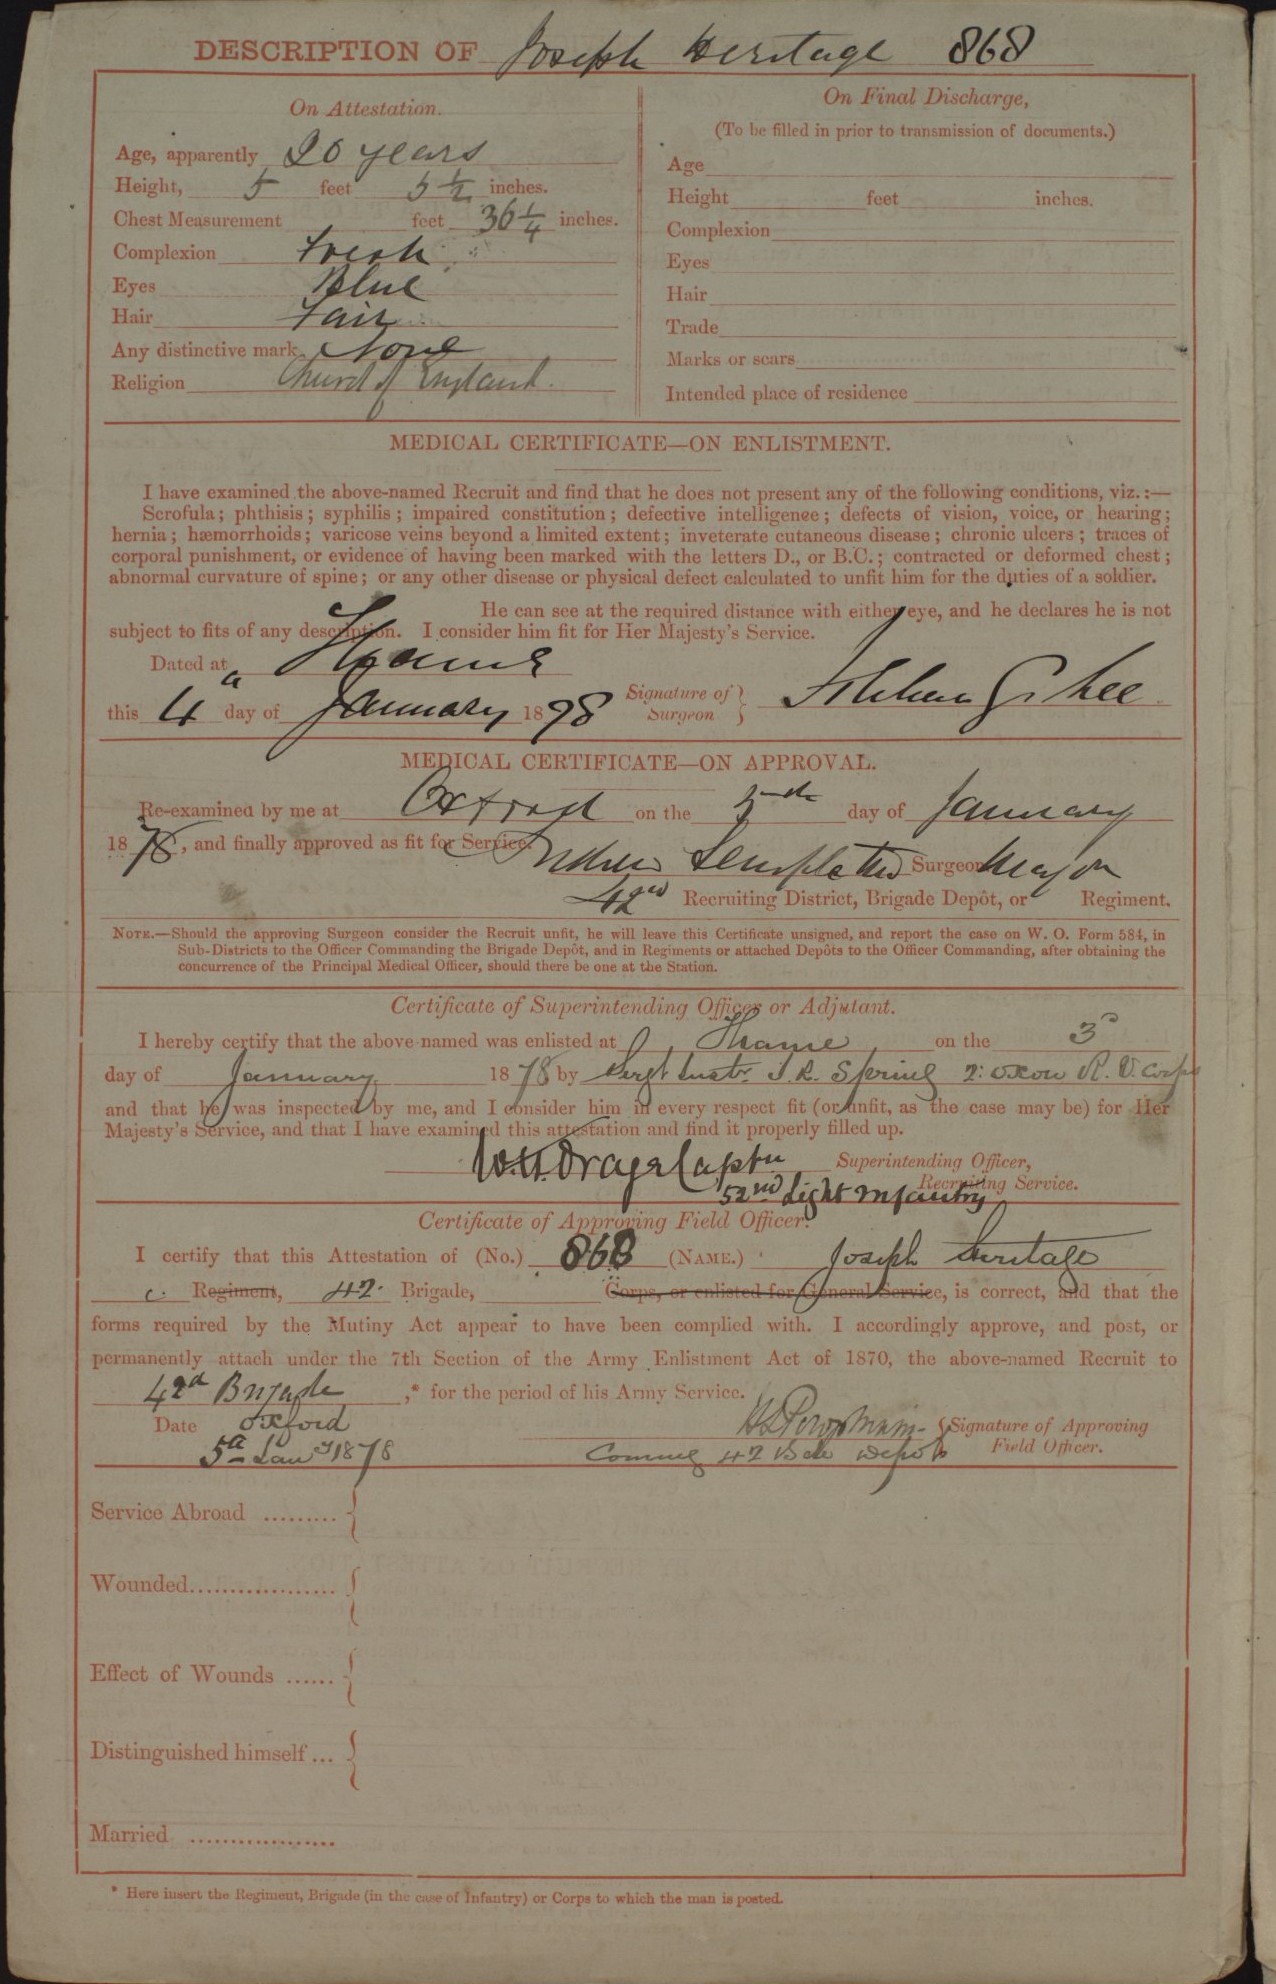 DESCRIPTION OF Joseph Heritage 868
On Attestation.
Age, apparently 20 years
Height, 5 feet 5 1/2 inches.
Chest Measurement feet 36 1/4 inches.
Complexion Fresh
Eyes Blue
Hair Fair
Any distinctive mark None
Religion Church of England.
On Final Discharge,
(To be filled in prior to transmission of documents.)
Age
Height feet inches.
Complexion
Eyes
Hair
Trade
Marks or scars
Intended place of residence
MEDICAL CERTIFICATE—ON ENLISTMENT.
I have examined the above-named Recruit and find that he does not present any of the following conditions, viz.:—
Scrofula; phthisis; syphilis; impaired constitution; defective intelligence; defects of vision, voice, or hearing;
hernia; hæmorrhoids; varicose veins beyond a limited extent; inveterate cutaneous disease; chronic ulcers; traces of
corporal punishment, or evidence of having been marked with the letters D., or B.C.; contracted or deformed chest;
abnormal curvature of spine; or any other disease or physical defect calculated to unfit him for the duties of a soldier.
He can see at the required distance with either eye, and he declares he is not
subject to fits of any description. I consider him fit for Her Majesty's Service.
Dated at Thame
this 4 day of January 1878 Signature of Surgeon Lee
MEDICAL CERTIFICATE—ON APPROVAL.
Re-examined by me at Oxford on the 5th day of January
1878, and finally approved as fit for Service.
Andrew Templeton Surgeon Major
42nd Recruiting District, Brigade Depôt, or Regiment.
NOTE.—Should the approving Surgeon consider the Recruit unfit, he will leave this Certificate unsigned, and report the case on W. O. Form 584, in
Sub-Districts to the Officer Commanding the Brigade Depôt, and in Regiments or attached Depôts to the Officer Commanding, after obtaining the
concurrence of the Principal Medical Officer, should there be one at the Station.
Certificate of Superintending Officer or Adjutant.
I hereby certify that the above named was enlisted at Thame on the 3d
day of January 1878 by Sergt Instr. J. R. Spring 2: Oxon R. V. Corps
and that he was inspected by me, and I consider him in every respect fit (or unfit, as the case may be) for Her
Majesty's Service, and that I have examined this attestation and find it properly filled up.
W.H. Drage Captn Superintending Officer,
52nd Light Infantry Recruiting Service.
Certificate of Approving Field Officer.
I certify that this Attestation of (No.) 868 (NAME.) Joseph Heritage
Regiment, 42. Brigade, Corps, or enlisted for General Service, is correct, and that the
forms required by the Mutiny Act appear to have been complied with. I accordingly approve, and post, or
permanently attach under the 7th Section of the Army Enlistment Act of 1870, the above-named Recruit to
42d Brigade ,* for the period of his Army Service.
Date Oxford
5th Jany 1878
Signature of Approving
Field Officer.
42 Bde Depot
Service Abroad .........
Wounded..................
Effect of Wounds ......
Distinguished himself ...
Married ..................
* Here insert the Regiment, Brigade (in the case of Infantry) or Corps to which the man is posted.